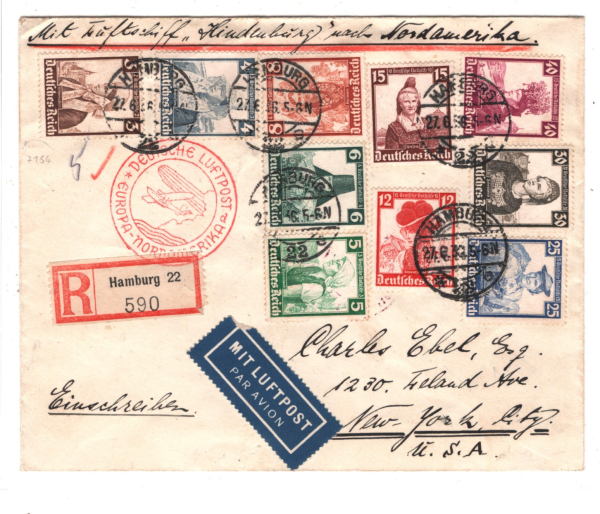 Mit Luftschiff "Hindenburg" nach Nordamerika.
3
Deutsches Reich
HAMBURG
27.6.
4
Deutsches Reich
8
Deutsches Reich
HAMBURG
27.6.36.5-6N
15
Deutsches Reich
HAMBURG
27.6.36.5-6N
40
Deutsches Reich
6
Deutsches Reich
HAMBURG
36.5-6N
22
5
Deutsches Reich
12
12
Deutsches Reich
HAMBURG
27.6.36.5-6N
30
Deutsches Reich
25
Deutsches Reich
DEUTSCHE LUFTPOST
EUROPA-NORDAMERIKA
R
Hamburg 22
590
MIT LUFTPOST
PAR AVION
Einschreiben
Charles Ebel, Esq.
1230. Leland Ave.
New-York, City.
U.S.A